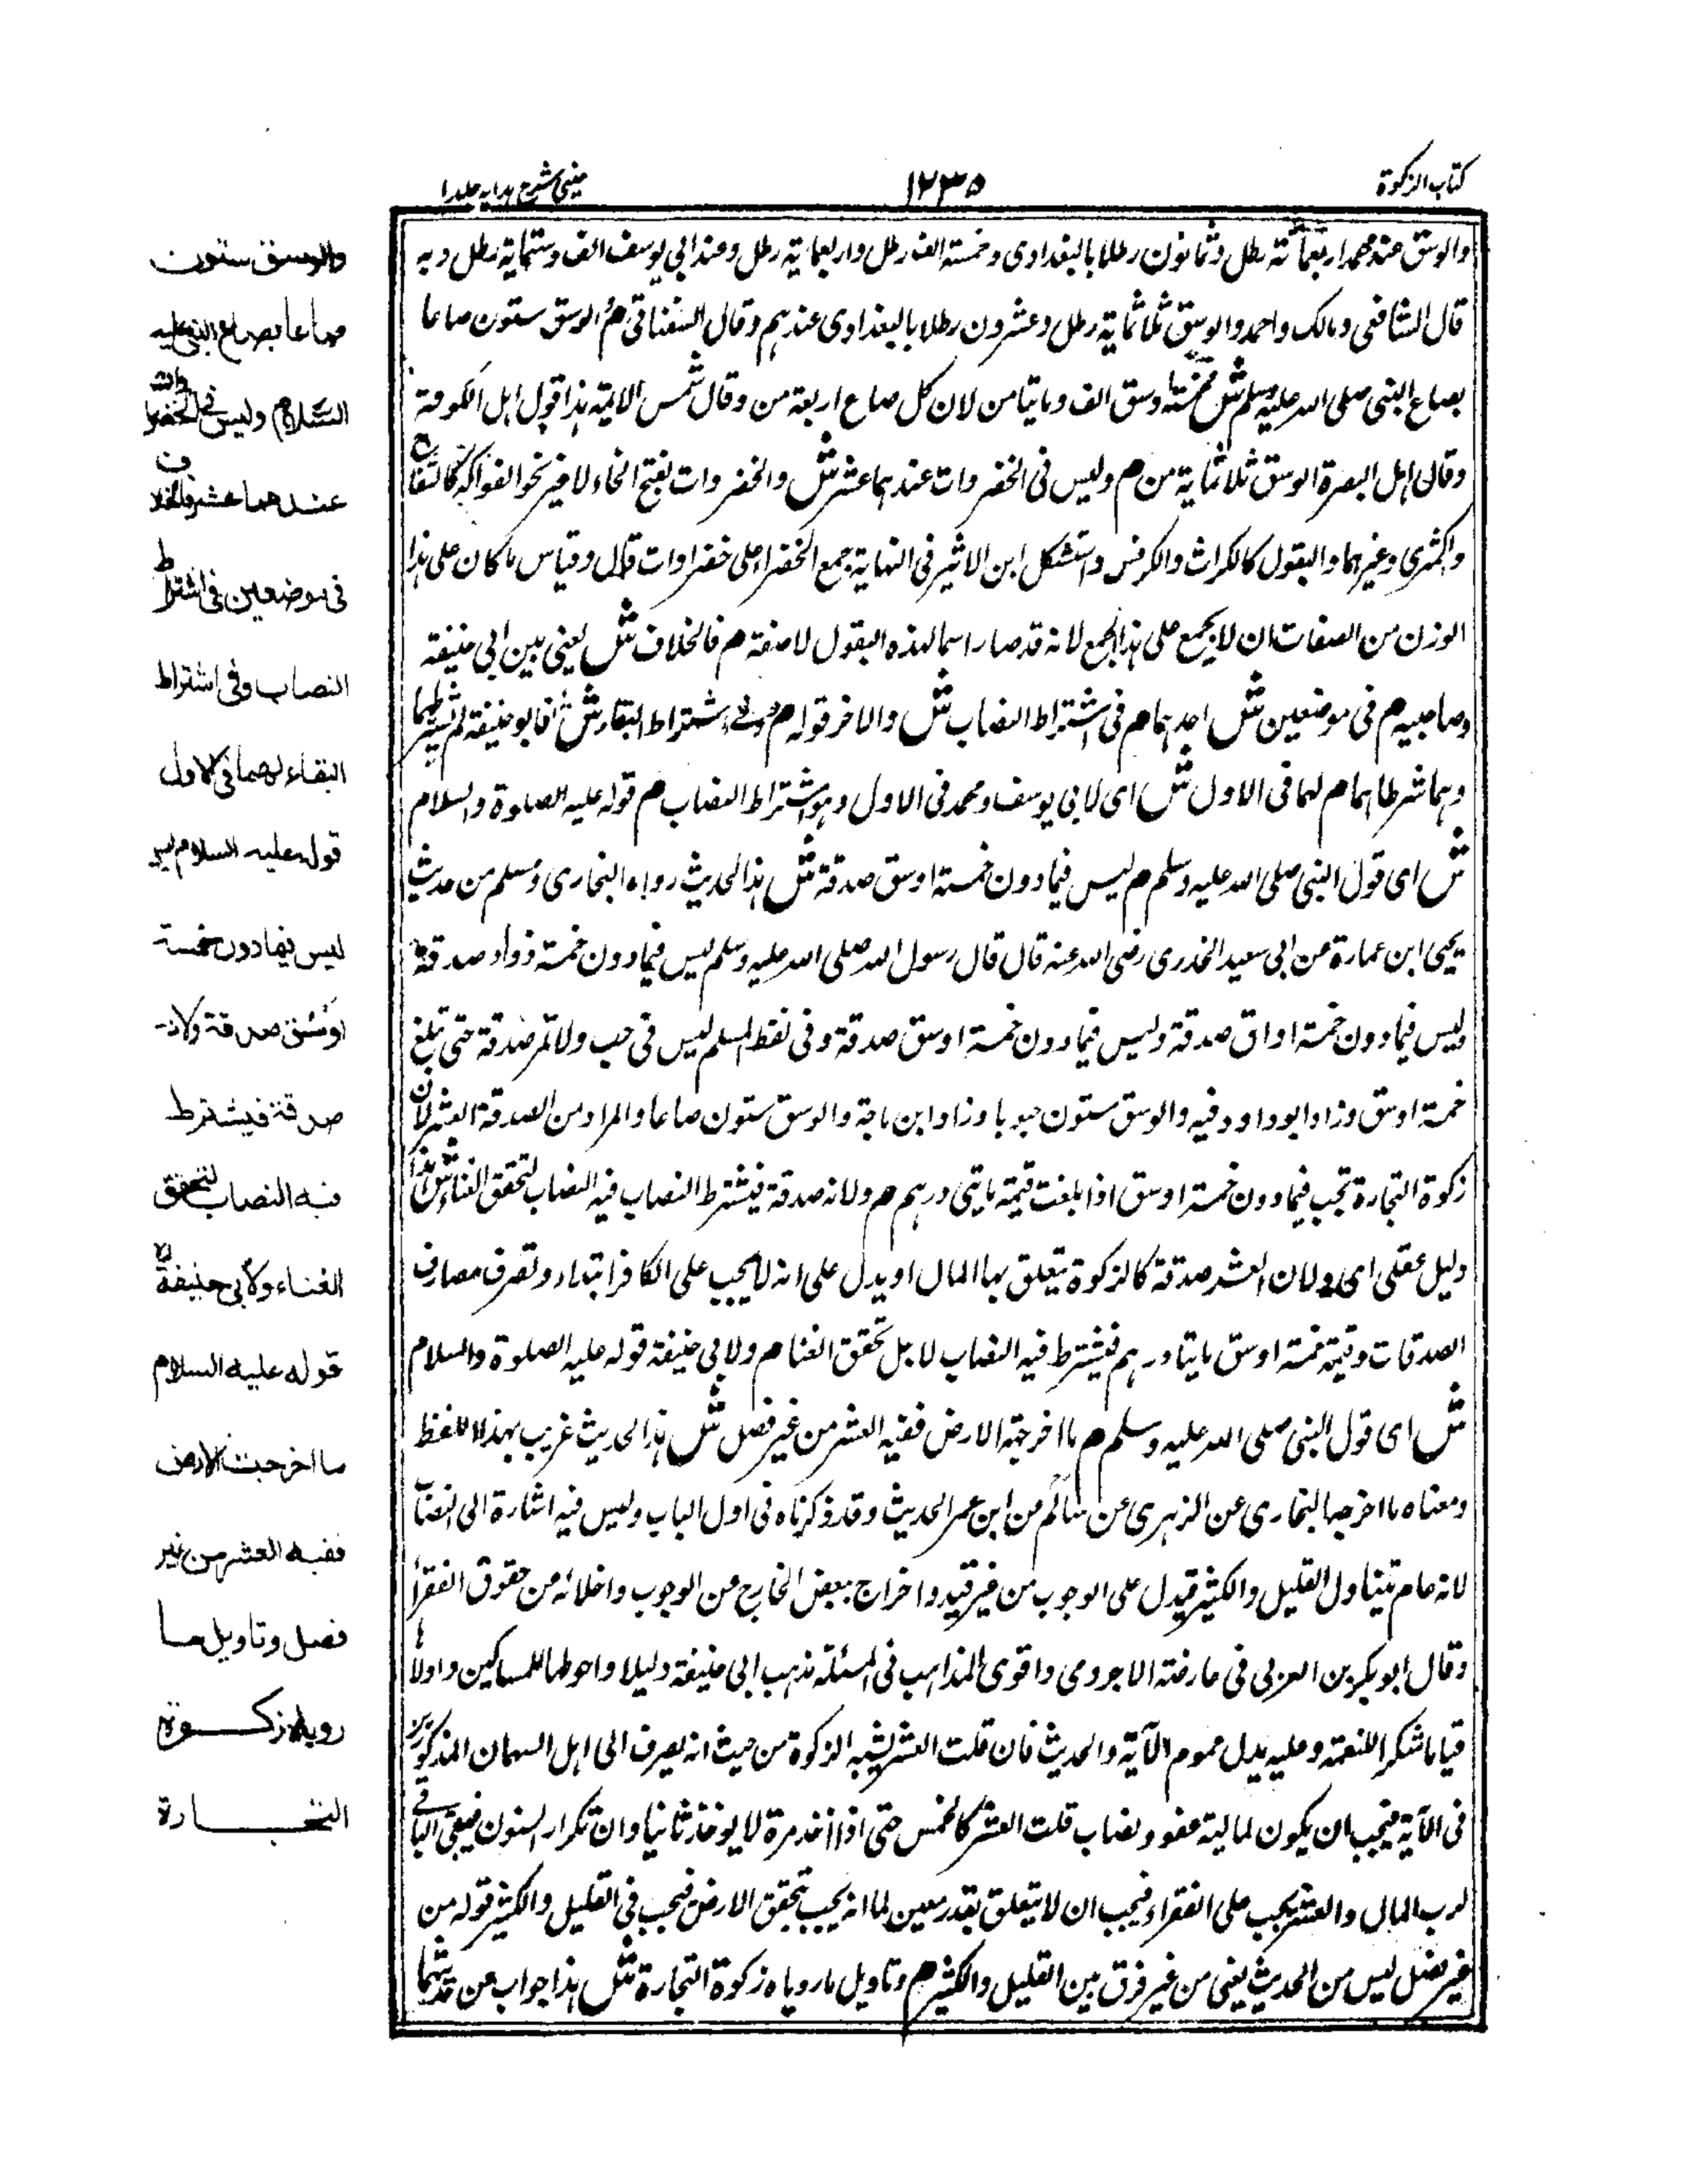 كتاب الزكوة
١٢٣٥
عينى شرح هدايه جلد ١
والوسق عند محمد اربعمائة رطل وثمانون رطلا بالبغدادى وخمسة الف رطل واربعماية رطل وعند ابي يوسف الف وستماية رطل وبه
قال الشافعى ومالك واحمد والوسق ثلاثماية رطل وعشرون رطلا بالبغدادى عندهم وقال السغناقى م الوسق ستون صاعا
بصاع النبى صلى الله عليه وسلم ش فخمسة اوسق الف ومايتا من لان كل صاع اربعة من وقال شمس الايمة هذا قول اهل الكوفة
وقال اهل البصرة الوسق ثلاثماية من م وليس فى الخضروات عندهما عشر ش والخضروات بفتح الخاء لا غير نحو الفواكه كالتفاح
والكمثرى وغيرهما والبقول كالكراث والكرفس واستشكل ابن الاثير فى النهاية جمع الخضراء على خضراوات قال وقياس ما كان على هذا
الوزن من الصفات ان لا يجمع على هذا الجمع لانه قد صار اسما لهذه البقول لا صفة م فالخلاف ش يعنى بين ابي حنيفة
وصاحبيه م فى موضعين ش احدهما م فى اشتراط النصاب ش والاخر قوله م وفى اشتراط البقاء ش فابو حنيفة لم يشترطهما
وهما شرطاهما م لهما فى الاول ش اى لابي يوسف ومحمد فى الاول وهو اشتراط النصاب م قوله عليه الصلوة والسلام
ش اى قول النبى صلى الله عليه وسلم م ليس فيما دون خمسة اوسق صدقة ش هذا الحديث رواه البخارى ومسلم من حديث
يحيى ابن عمارة عن ابي سعيد الخدرى رضى الله عنه قال قال رسول الله صلى الله عليه وسلم ليس فيما دون خمسة ذواد صدقة
وليس فيما دون خمسة اواق صدقة وليس فيما دون خمسة اوسق صدقة وفى لفظ لمسلم ليس فى حب ولا تمر صدقة حتى تبلغ
خمسة اوسق وزاد ابو داود فيه والوسق ستون حبوبا وزاد ابن ماجة والوسق ستون صاعا والمراد من الصدقة العشر لان
زكوة التجارة تجب فيما دون خمسة اوسق اذا بلغت قيمته مايتى درهم م ولانه صدقة فيشترط النصاب فيه النصاب لتحقق الغناء ش هذا
دليل عقلى اى ولان العشر صدقة كالزكوة يتعلق بهاا المال او يدل على انه لا يجب على الكافر ابتداء وتصرف مصارف
الصدقات وقيمة خمسة اوسق مايتا درهم فيشترط فيه النصاب لاجل تحقق الغنا م ولابي حنيفة قوله عليه الصلوة والسلام
ش اى قول النبى صلى الله عليه وسلم م ما اخرجته الارض ففيه العشر من غير فصل ش هذا الحديث غريب بهذا اللفظ
ومعناه ما اخرجه البخارى عن الزهرى عن سالم من ابن عمر الحديث وقد ذكرناه فى اول الباب وليس فيه اشارة الى النصاب
لانه عام تيناول القليل والكثير فيدل على الوجوب من غير قيد واخراج بعض الخارج عن الوجوب واخلائه من حقوق الفقرأ
وقال ابو بكر بن العربى فى عارضة الاحوذى واقوى المذاهب فى المسئلة مذهب ابى حنيفة دليلا واحوطها للمساكين واولاها
قياما شكرا للنعمة وعليه يدل عموم الآية والحديث فان قلت العشر يشبه الزكوة من حيث انه يصرف الى اهل السهمان المذكورين
فى الآية فيجب ان يكون لماليته عفو ونصاب قلت العشر كالخمس حتى اذا اخذ مرة لا يوخذ ثانيا وان تكرار السنون فيبقى الباقى
لرب المال والعشر يجب على الفقراء فيجب ان لا يتعلق بقدر معين لما انه يجب بتحقق الارض فيجب فى القليل والكثير قوله من
غير فصل ليس من الحديث يعنى من غير فرق بين القليل والكثير م وتاويل ما روياه زكوة التجارة ش هذا جواب عن حديثهما
والوسق ستون
صاعا بصاع النبى عليه
السلام وليس فى الخضراوات
عندهما عشر فالخلاف
فى موضعين فى اشتراط
النصاب وفى اشتراط
البقاء لهما فى الاول
قوله عليه السلام
ليس فيما دون خمسة
اوسق صدقة ولانه
صدقة فيشترط
فيه النصاب لتحقق
الغناء ولابى حنيفة رح
قوله عليه السلام
ما اخرجت الارض
ففيه العشر من غير
فصل وتاويل ما
روياه زكوة
التجارة